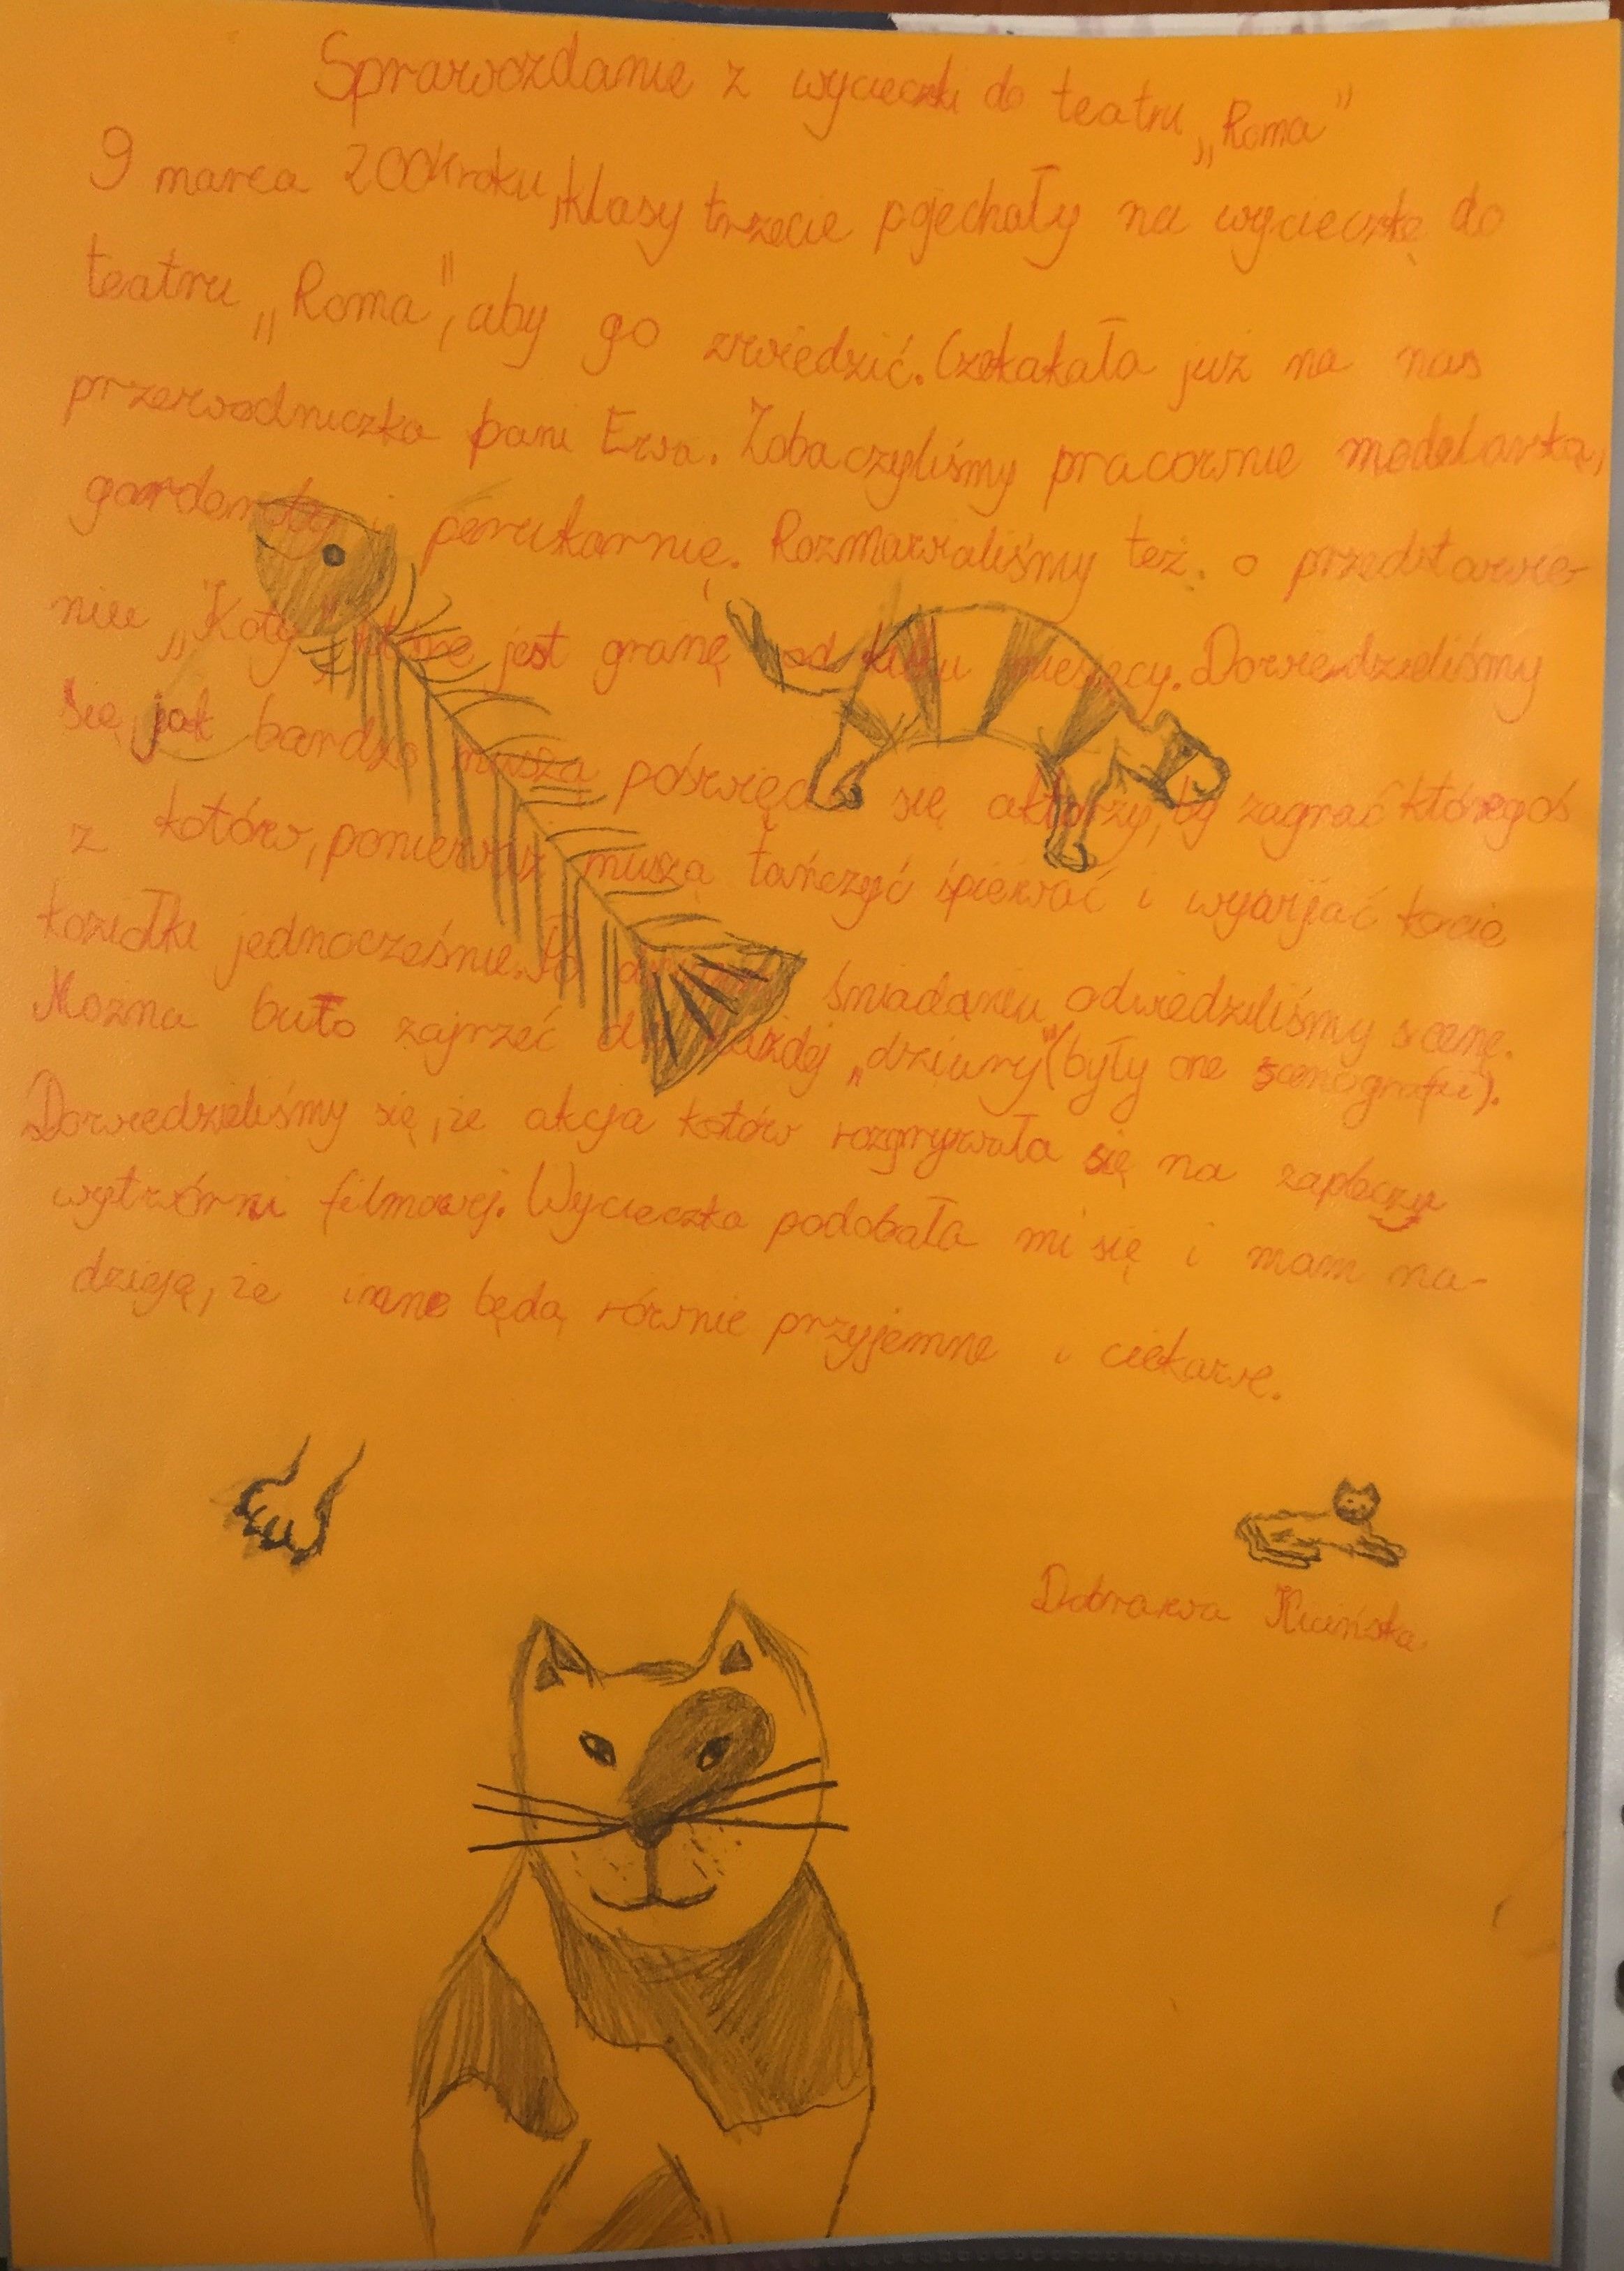 Sprawozdanie z wycieczki do teatru „Roma"
9 marca 2004 roku, klasy trzecie pojechały na wycieczkę do
teatru „Roma", aby go zwiedzić. Czekakała już na nas
przewodniczka pani Ewa. Zobaczyliśmy pracownie modelarską,
garderobę i perukarnię. Rozmawialiśmy też o przedstawie-
niu „Koty" które jest granę od kilku miesięcy. Dowiedzieliśmy
się, jak bardzo muszą poświęcać się aktorzy, by zagrać któregoś
z kotów, ponieważ muszą tańczyć śpiewać i wywijać kocie
koziołki jednocześnie. Po śniadaniu odwiedziliśmy scenę.
Można buło zajrzeć do każdej „dziury" (były one scenografii).
Dowiedzieliśmy się, że akcja kotów rozgrywała się na zapleczu
wytwórni filmowej. Wycieczka podobała mi się i mam na-
dzieję, że inane będą równie przyjemne i ciekawe.
Dobrawa